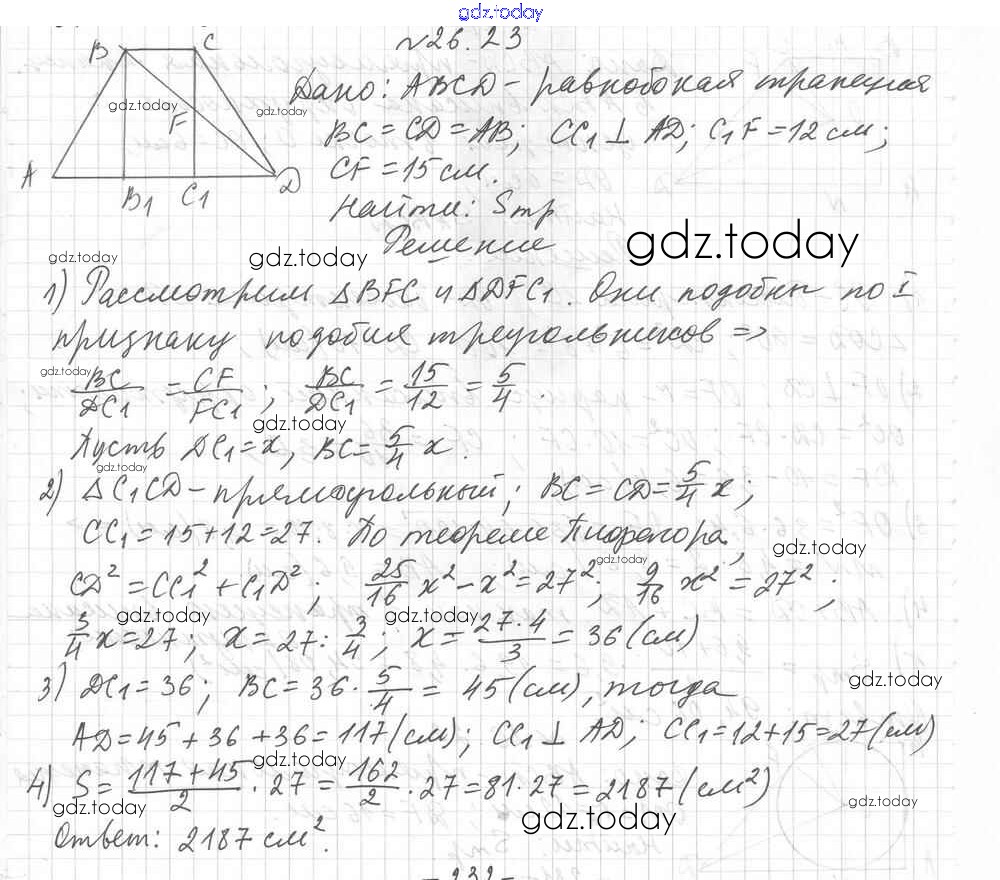 gdz.today
№26.23
B C
Дано: ABCD - равнобокая трапеция
gdz.today gdz.today
F
BC = CD = AB; CC1 ⊥ AD; C1F = 12 см;
A B1 C1 D
CF = 15 см.
Найти: Sтр
Решение
gdz.today gdz.today gdz.today
1) Рассмотрим △BFC и △DFC1. Они подобны по I
признаку подобия треугольников =>
gdz.today
BC/DC1 = CF/FC1; BC/DC1 = 15/12 = 5/4.
gdz.today
Пусть DC1 = x, BC = 5/4 x.
gdz.today
2) △C1CD - прямоугольный; BC = CD = 5/4 x;
CC1 = 15 + 12 = 27. По теореме Пифагора,
gdz.today gdz.today
CD² = CC1² + C1D²; 25/16 x² - x² = 27²; 9/16 x² = 27²;
gdz.today gdz.today
3/4 x = 27; x = 27 : 3/4; x = 27·4/3 = 36 (см)
gdz.today
3) DC1 = 36; BC = 36 · 5/4 = 45 (см), тогда
AD = 45 + 36 + 36 = 117 (см); CC1 ⊥ AD; CC1 = 12 + 15 = 27 (см)
gdz.today
4) S = 117 + 45/2 · 27 = 162/2 · 27 = 81 · 27 = 2187 (см²)
gdz.today gdz.today gdz.today
Ответ: 2187 см².
- 232 -